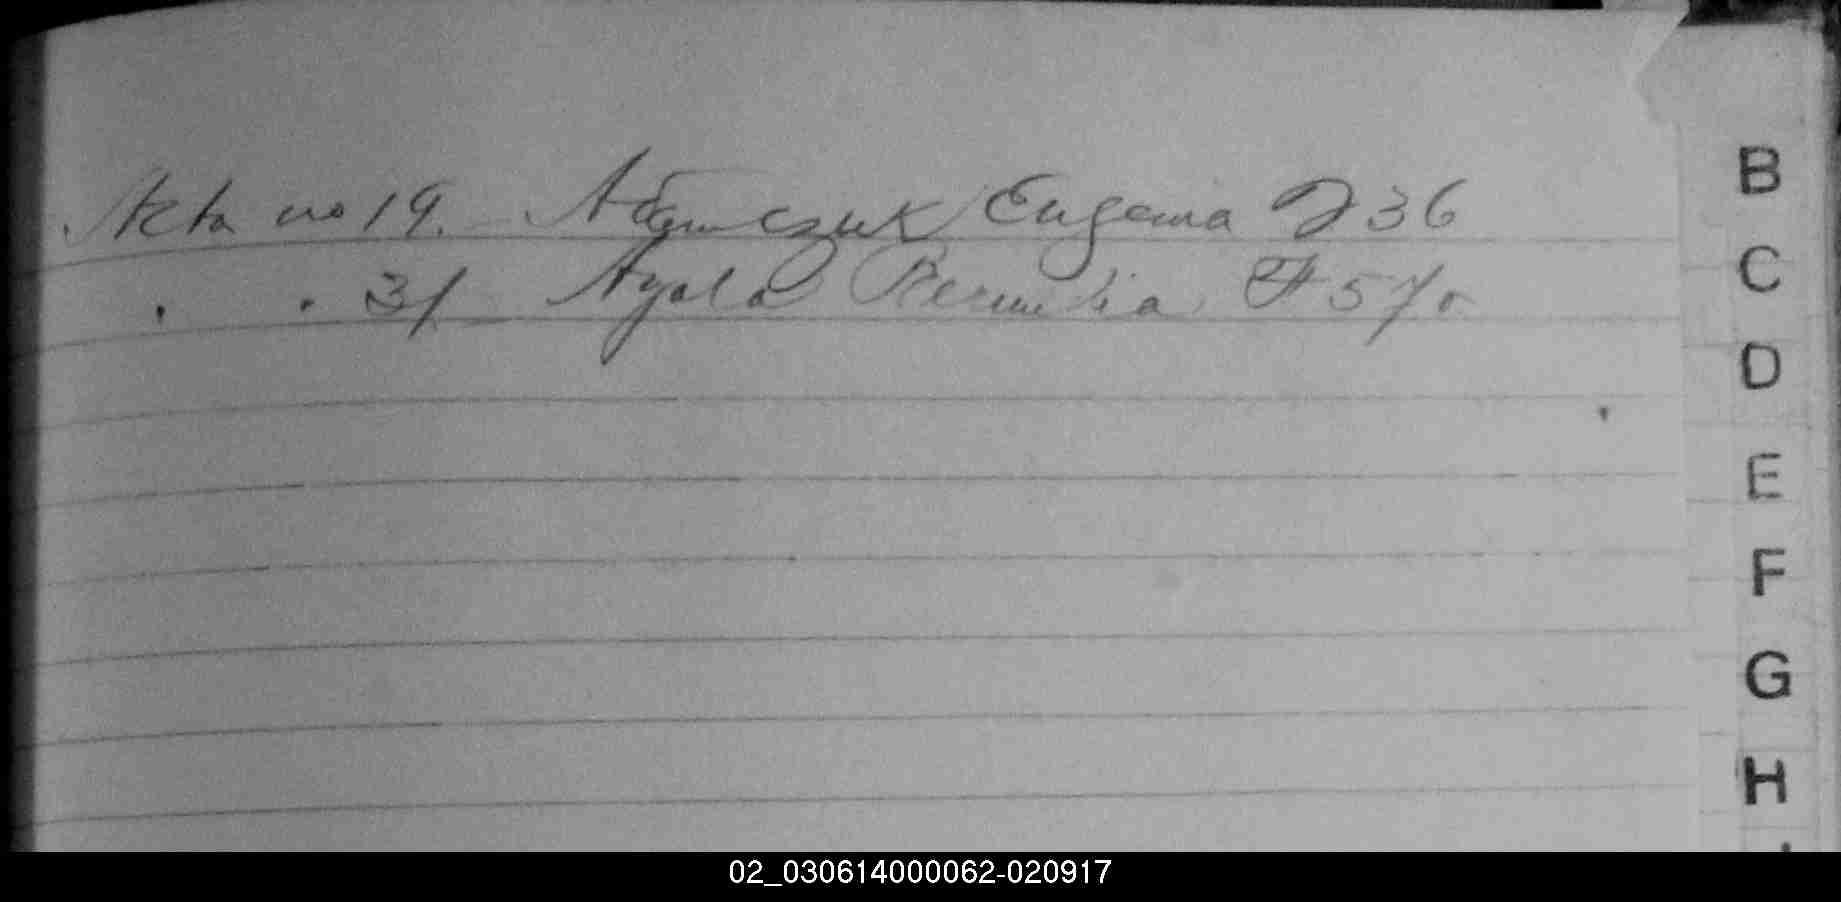 Acta no 19. Adamczuk Eugenia F 36
" " 31 Ayala F 57
B
C
D
E
F
G
H
02_030614000062-020917